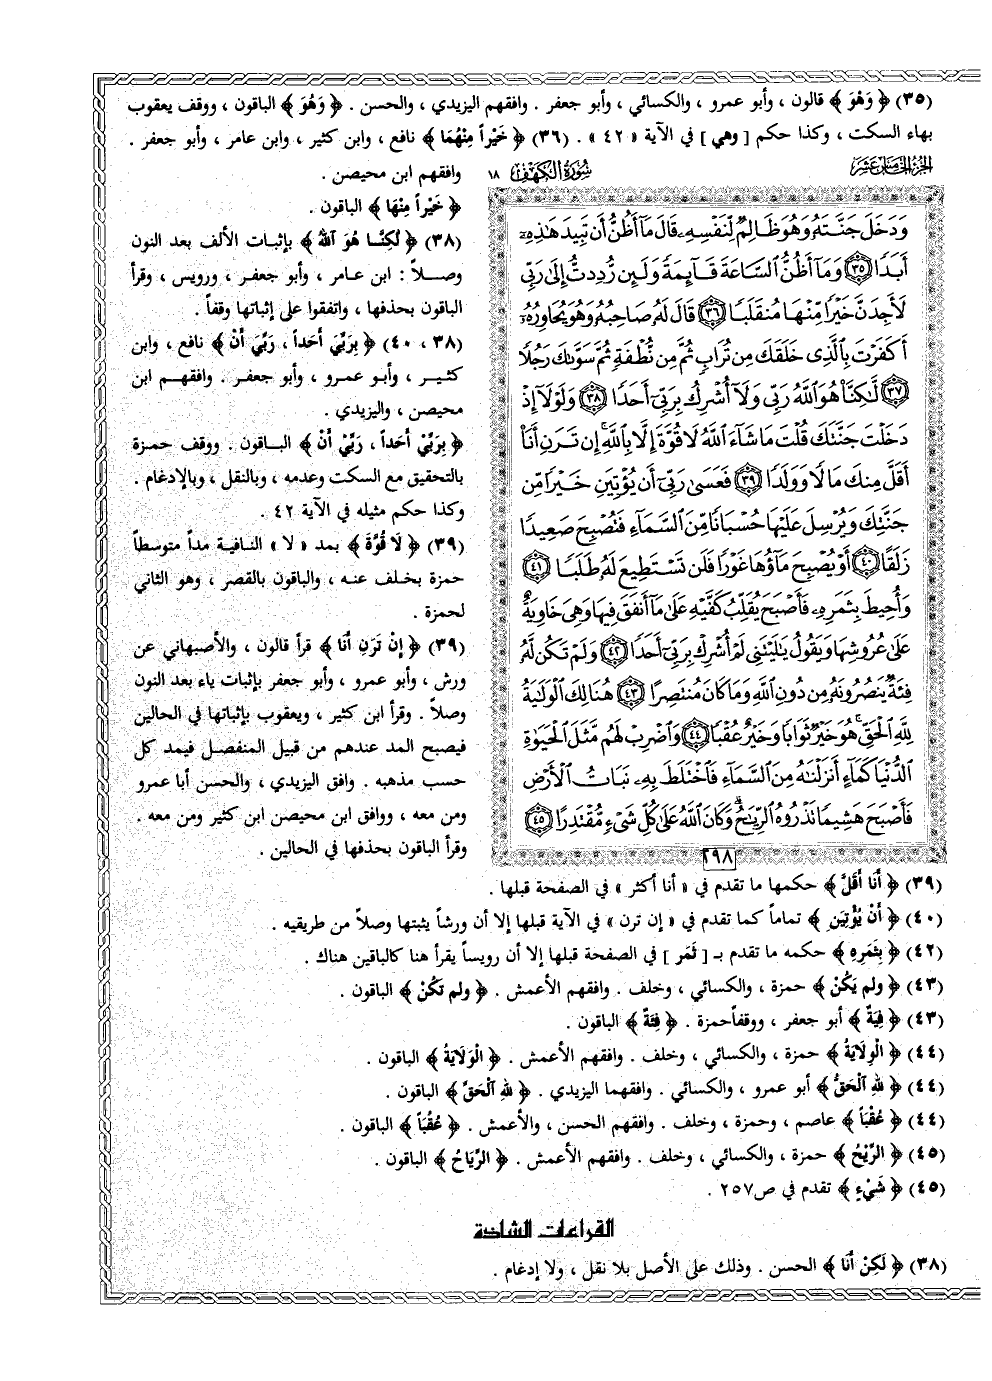 (٣٥) ﴿ وَهْوَ ﴾ قالون ، وأبو عمرو ، والكسائي ، وأبو جعفر . وافقهم اليزيدي ، والحسن . ﴿ وَهُوَ ﴾ الباقون ، ووقف يعقوب
بهاء السكت ، وكذا حكم [ وهي ] في الآية « ٤٢ » . (٣٦) ﴿ خَيْراً مِنْهُمَا ﴾ نافع ، وابن كثير ، وابن عامر ، وأبو جعفر .
الجزء الخامس عشر
سورة الكهف ١٨
وَدَخَلَ جَنَّتَهُۥ وَهُوَ ظَالِمٌ لِّنَفْسِهِۦ قَالَ مَآ أَظُنُّ أَن تَبِيدَ هَٰذِهِۦٓ
أَبَدًا ٣٥ وَمَآ أَظُنُّ ٱلسَّاعَةَ قَآئِمَةً وَلَئِن رُّدِدتُّ إِلَىٰ رَبِّى
لَأَجِدَنَّ خَيْرًا مِّنْهَا مُنقَلَبًا ٣٦ قَالَ لَهُۥ صَاحِبُهُۥ وَهُوَ يُحَاوِرُهُۥٓ
أَكَفَرْتَ بِٱلَّذِى خَلَقَكَ مِن تُرَابٍ ثُمَّ مِن نُّطْفَةٍ ثُمَّ سَوَّىٰكَ رَجُلًا
٣٧ لَّٰكِنَّا۠ هُوَ ٱللَّهُ رَبِّى وَلَآ أُشْرِكُ بِرَبِّىٓ أَحَدًا ٣٨ وَلَوْلَآ إِذْ
دَخَلْتَ جَنَّتَكَ قُلْتَ مَا شَآءَ ٱللَّهُ لَا قُوَّةَ إِلَّا بِٱللَّهِ ۚ إِن تَرَنِ أَنَا۠
أَقَلَّ مِنكَ مَالًا وَوَلَدًا ٣٩ فَعَسَىٰ رَبِّىٓ أَن يُؤْتِيَنِ خَيْرًا مِّن
جَنَّتِكَ وَيُرْسِلَ عَلَيْهَا حُسْبَانًا مِّنَ ٱلسَّمَآءِ فَتُصْبِحَ صَعِيدًا
زَلَقًا ٤٠ أَوْ يُصْبِحَ مَآؤُهَا غَوْرًا فَلَن تَسْتَطِيعَ لَهُۥ طَلَبًا ٤١
وَأُحِيطَ بِثَمَرِهِۦ فَأَصْبَحَ يُقَلِّبُ كَفَّيْهِ عَلَىٰ مَآ أَنفَقَ فِيهَا وَهِىَ خَاوِيَةٌ
عَلَىٰ عُرُوشِهَا وَيَقُولُ يَٰلَيْتَنِى لَمْ أُشْرِكْ بِرَبِّىٓ أَحَدًا ٤٢ وَلَمْ تَكُن لَّهُۥ
فِئَةٌ يَنصُرُونَهُۥ مِن دُونِ ٱللَّهِ وَمَا كَانَ مُنتَصِرًا ٤٣ هُنَالِكَ ٱلْوَلَٰيَةُ
لِلَّهِ ٱلْحَقِّ ۚ هُوَ خَيْرٌ ثَوَابًا وَخَيْرٌ عُقْبًا ٤٤ وَٱضْرِبْ لَهُم مَّثَلَ ٱلْحَيَوٰةِ
ٱلدُّنْيَا كَمَآءٍ أَنزَلْنَٰهُ مِنَ ٱلسَّمَآءِ فَٱخْتَلَطَ بِهِۦ نَبَاتُ ٱلْأَرْضِ
فَأَصْبَحَ هَشِيمًا تَذْرُوهُ ٱلرِّيَٰحُ ۗ وَكَانَ ٱللَّهُ عَلَىٰ كُلِّ شَىْءٍ مُّقْتَدِرًا ٤٥
٢٩٨
وافقهم ابن محيصن .
﴿ خَيْراً مِنْهَا ﴾ الباقون .
(٣٨) ﴿ لَكِنَّا هُوَ اللهُ ﴾ بإثبات الألف بعد النون
وصلاً : ابن عامر ، وأبو جعفر ، ورويس ، وقرأ
الباقون بحذفها ، واتفقوا على إثباتها وقفاً .
(٣٨ ، ٤٠) ﴿ بِرَبِّيَ أَحَداً ، رَبِّيَ أَنْ ﴾ نافع ، وابن
كثير ، وأبو عمرو ، وأبو جعفر . وافقهم ابن
محيصن ، واليزيدي .
﴿ بِرَبِّيْ أَحَداً ، رَبِّيْ أَنْ ﴾ الباقون . ووقف حمزة
بالتحقيق مع السكت وعدمه ، وبالنقل ، وبالإدغام .
وكذا حكم مثيله في الآية ٤٢ .
(٣٩) ﴿ لَا قُوَّةَ ﴾ بمد « لا » النافية مداً متوسطاً
حمزة بخلف عنه ، والباقون بالقصر ، وهو الثاني
لحمزة .
(٣٩) ﴿ إِنْ تَرَنِ أَنَا ﴾ قرأ قالون ، والأصبهاني عن
ورش ، وأبو عمرو ، وأبو جعفر بإثبات ياء بعد النون
وصلاً . وقرأ ابن كثير ، ويعقوب بإثباتها في الحالين
فيصبح المد عندهم من قبيل المنفصل فيمد كل
حسب مذهبه . وافق اليزيدي ، والحسن أبا عمرو
ومن معه ، ووافق ابن محيصن ابن كثير ومن معه .
وقرأ الباقون بحذفها في الحالين .
(٣٩) ﴿ أَنَا أَقَلَّ ﴾ حكمها ما تقدم في « أنا أكثر » في الصفحة قبلها .
(٤٠) ﴿ أَنْ يُؤْتِيَنِ ﴾ تماماً كما تقدم في « إن ترن » في الآية قبلها إلا أن ورشاً يثبتها وصلاً من طريقيه .
(٤٢) ﴿ بِثَمَرِهِ ﴾ حكمه ما تقدم بـ [ ثَمَر ] في الصفحة قبلها إلا أن رويساً يقرأ هنا كالباقين هناك .
(٤٣) ﴿ ولم يَكُنْ ﴾ حمزة ، والكسائي ، وخلف . وافقهم الأعمش . ﴿ ولم تَكُنْ ﴾ الباقون .
(٤٣) ﴿ فِيَةٌ ﴾ أبو جعفر ، ووقفاً حمزة . ﴿ فِئَةٌ ﴾ الباقون .
(٤٤) ﴿ الْوِلَايَةُ ﴾ حمزة ، والكسائي ، وخلف . وافقهم الأعمش . ﴿ الْوَلَايَةُ ﴾ الباقون .
(٤٤) ﴿ للهِ الْحَقُّ ﴾ أبو عمرو ، والكسائي . وافقهما اليزيدي . ﴿ للهِ الْحَقِّ ﴾ الباقون .
(٤٤) ﴿ عُقْباً ﴾ عاصم ، وحمزة ، وخلف . وافقهم الحسن ، والأعمش . ﴿ عُقُباً ﴾ الباقون .
(٤٥) ﴿ الرِّيْحُ ﴾ حمزة ، والكسائي ، وخلف . وافقهم الأعمش . ﴿ الرِّيَاحُ ﴾ الباقون .
(٤٥) ﴿ شَيْءٍ ﴾ تقدم في ص٢٥٧ .
القراءات الشاذة
(٣٨) ﴿ لَكِنْ أَنَا ﴾ الحسن . وذلك على الأصل بلا نقل ، ولا إدغام .